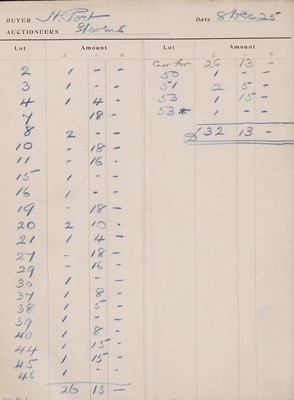 BUYER H. Port Date 8 Dec 25
AUCTIONEERS Stevens
Lot Amount
£ s d
2 1 - -
3 1 - -
4 1 4 -
7 18 -
8 2 - -
10 - 18 -
11 - 16 -
15 1 - -
16 1 - -
19 - 18 -
20 2 10 -
21 1 4 -
27 - 18 -
29 - 16 -
30 1 - -
37 1 8 -
38 1 5 -
39 1 - -
40 1 8 -
44 1 15 -
45 1 15 -
46 1 -
26 13 -
Lot Amount
£ s d
26 13 -
50 1 - -
51 2 5 -
53 1 15 -
53* 1 - -
£32 13 -